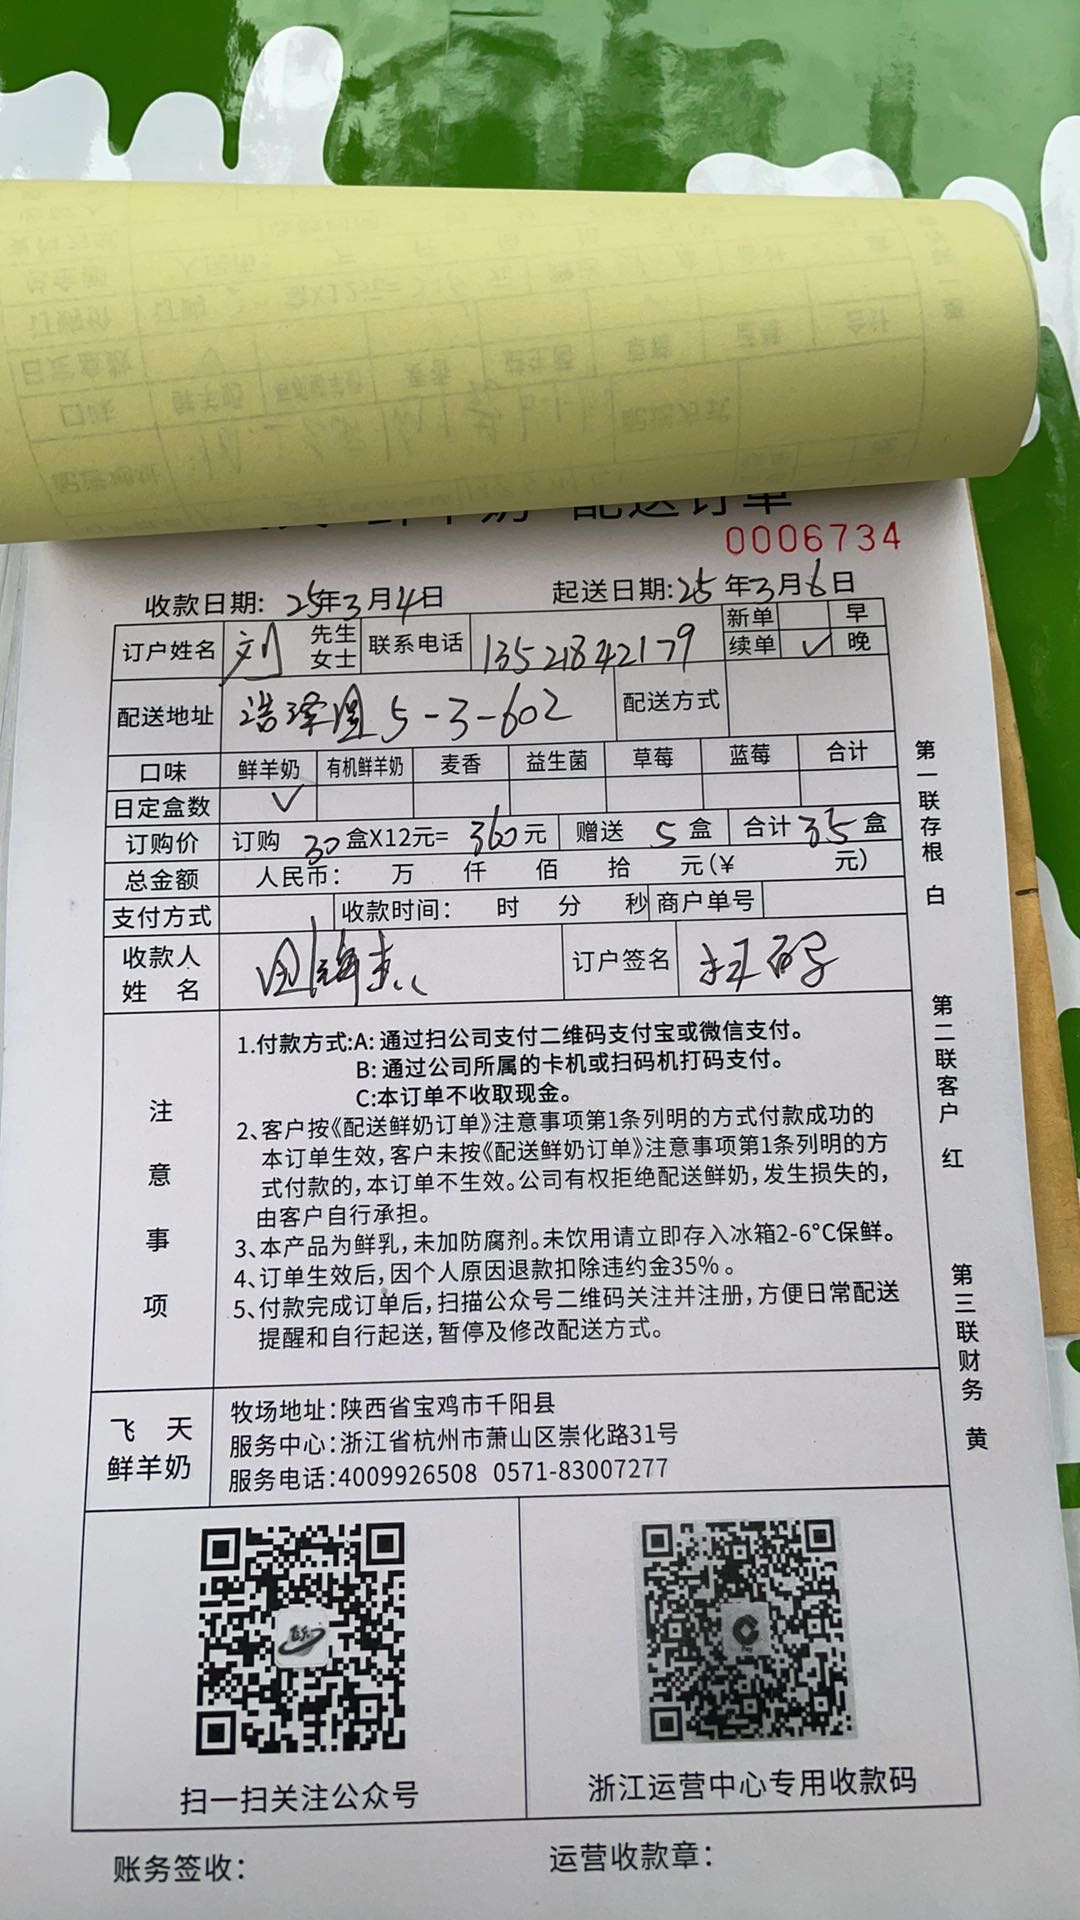 配送订单
0006734
收款日期: 25年3月4日 起送日期: 25年3月6日
订户姓名 刘 先生 女士 联系电话 13521842179 新单 早
续单 ✓ 晚
配送地址 浩泽园5-3-602 配送方式
口味 鲜羊奶 有机鲜羊奶 麦香 益生菌 草莓 蓝莓 合计
日定盒数 ✓
订购价 订购 30 盒X12元= 360 元 赠送 5 盒 合计 35 盒
总金额 人民币: 万 仟 佰 拾 元(¥ 元)
支付方式 收款时间: 时 分 秒 商户单号
收款人
姓 名
订户签名 扫码
注意事项
1.付款方式:A: 通过扫公司支付二维码支付宝或微信支付。
B: 通过公司所属的卡机或扫码机打码支付。
C:本订单不收取现金。
2、客户按《配送鲜奶订单》注意事项第1条列明的方式付款成功的
本订单生效,客户未按《配送鲜奶订单》注意事项第1条列明的方
式付款的,本订单不生效。公司有权拒绝配送鲜奶,发生损失的,
由客户自行承担。
3、本产品为鲜乳,未加防腐剂。未饮用请立即存入冰箱2-6°C保鲜。
4、订单生效后,因个人原因退款扣除违约金35%。
5、付款完成订单后,扫描公众号二维码关注并注册,方便日常配送
提醒和自行起送,暂停及修改配送方式。
飞 天
鲜羊奶
牧场地址:陕西省宝鸡市千阳县
服务中心:浙江省杭州市萧山区崇化路31号
服务电话:4009926508 0571-83007277
扫一扫关注公众号
浙江运营中心专用收款码
账务签收:
运营收款章:
第一联存根 白
第二联客户 红
第三联财务 黄